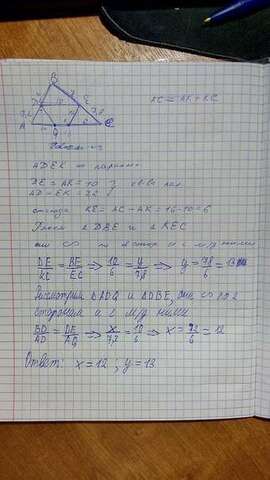 B
D
E
A
AC = AK + KC
ADEK — паралл.
DE = AK = 10
AD = EK = 7,2
отсюда KC = AC - AK = 16 - 10 = 6
Δ DBE и Δ KEC
DE/KC = BE/EC ⇒ 10/6 = y/7,8 ⇒ y = 78/6 = 13
Рассмотрим Δ ADQ и ΔDBE, они ∞ по 2
сторонам и ∠ м/д ними
BD/AD = DE/AQ ⇒ x/7,2 = 10/6 ⇒ x = 72/6 = 12
Ответ: x = 12 ; y = 13